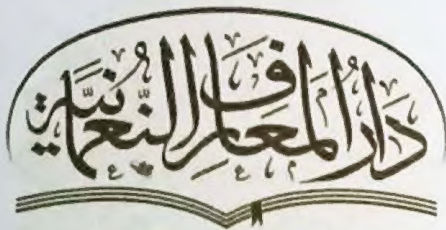 دَارُ المَعَارِفِ النُّعْمَانِيَّة